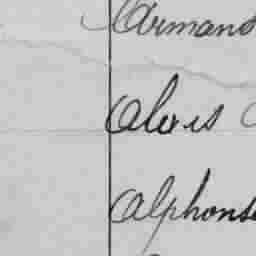 Armand
Alois
Alphonse